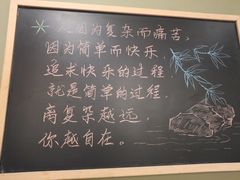 因为复杂而痛苦，
因为简单而快乐，
追求快乐的过程
就是简单的过程，
离复杂越远，
你越自在。